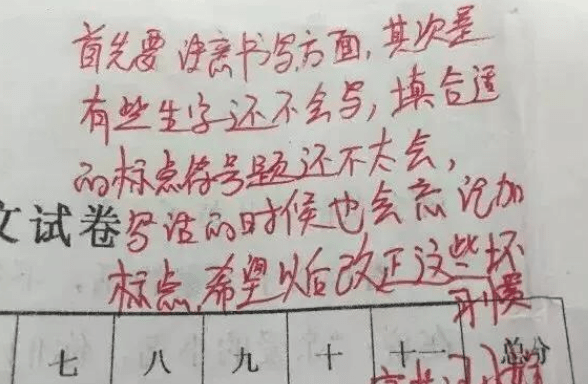 首先要注意书写方面,其次是
有些生字还不会写,填合适
的标点符号题还不太会,
文试卷
写话的时候也会忘记加
标点,希望以后改正这些坏
习惯
七 八 九 十 十一 总分